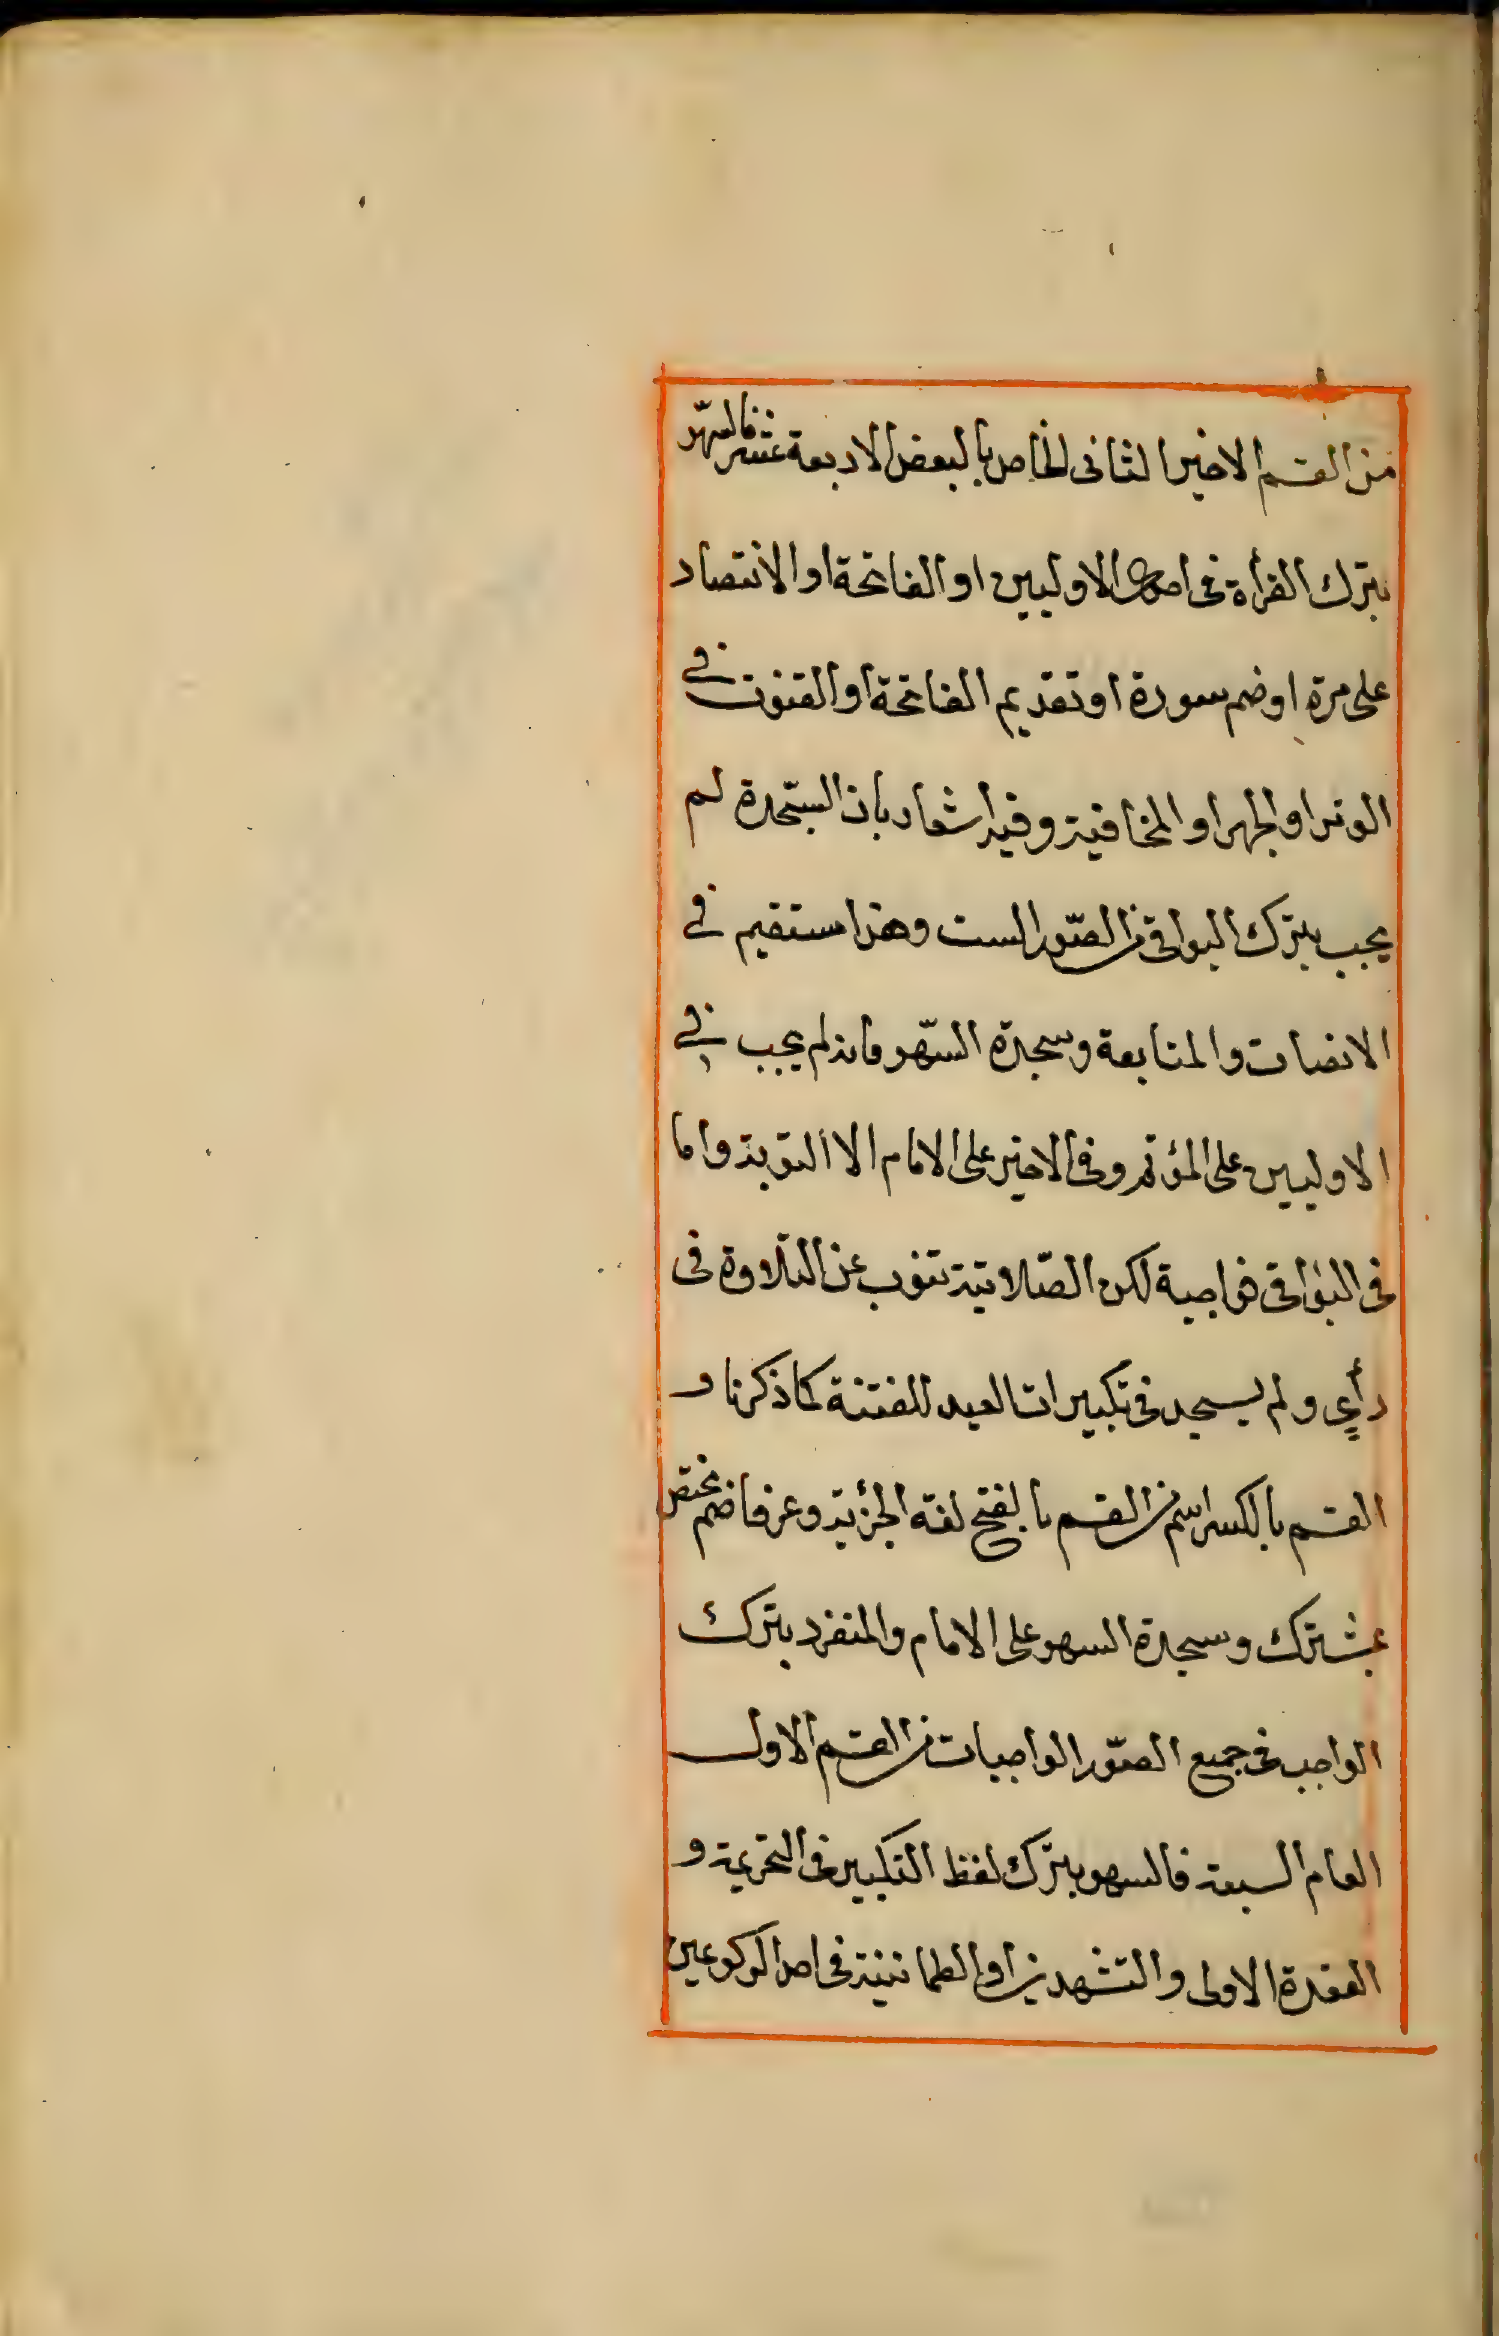 من القسم الاخير الثانى الخاص بالبعض الاربعة عشر فالسهو
بترك القرأة فى احدى الاوليين او الفاتحة او الاقتصار
على مرة او ضم سورة او تقديم الفاتحة او القنوت فى
الوتر او الجهر او المخافتة وفيه اشعار بان السجدة لم
يجب بترك البواقى من الصور الست وهذا مستقيم فى
الانصات والمتابعة وسجدة السهو فانه لم يجب فى
الاوليين على المؤتم وفى الاخير على الامام الا التوبة واما
فى البواقى فواجبة لكن الصلاتية تنوب عن التلاوة فى
رأى ولم يسجد فى تكبيرات العيد للفتنة كما ذكرنا و
القسم بالكسر اسم من القسم بالفتح لغة الجزئية وعرفا ضم مختص
بمشترك وسجدة السهو على الامام والمنفرد بترك
الواجب فى جميع الصور الواجبات من القسم الاول
العام السبعة فالسهو بترك لفظ التكبير فى التحريمة و
القعدة الاولى والتشهدين او الطمانينة فى احد الركوعين